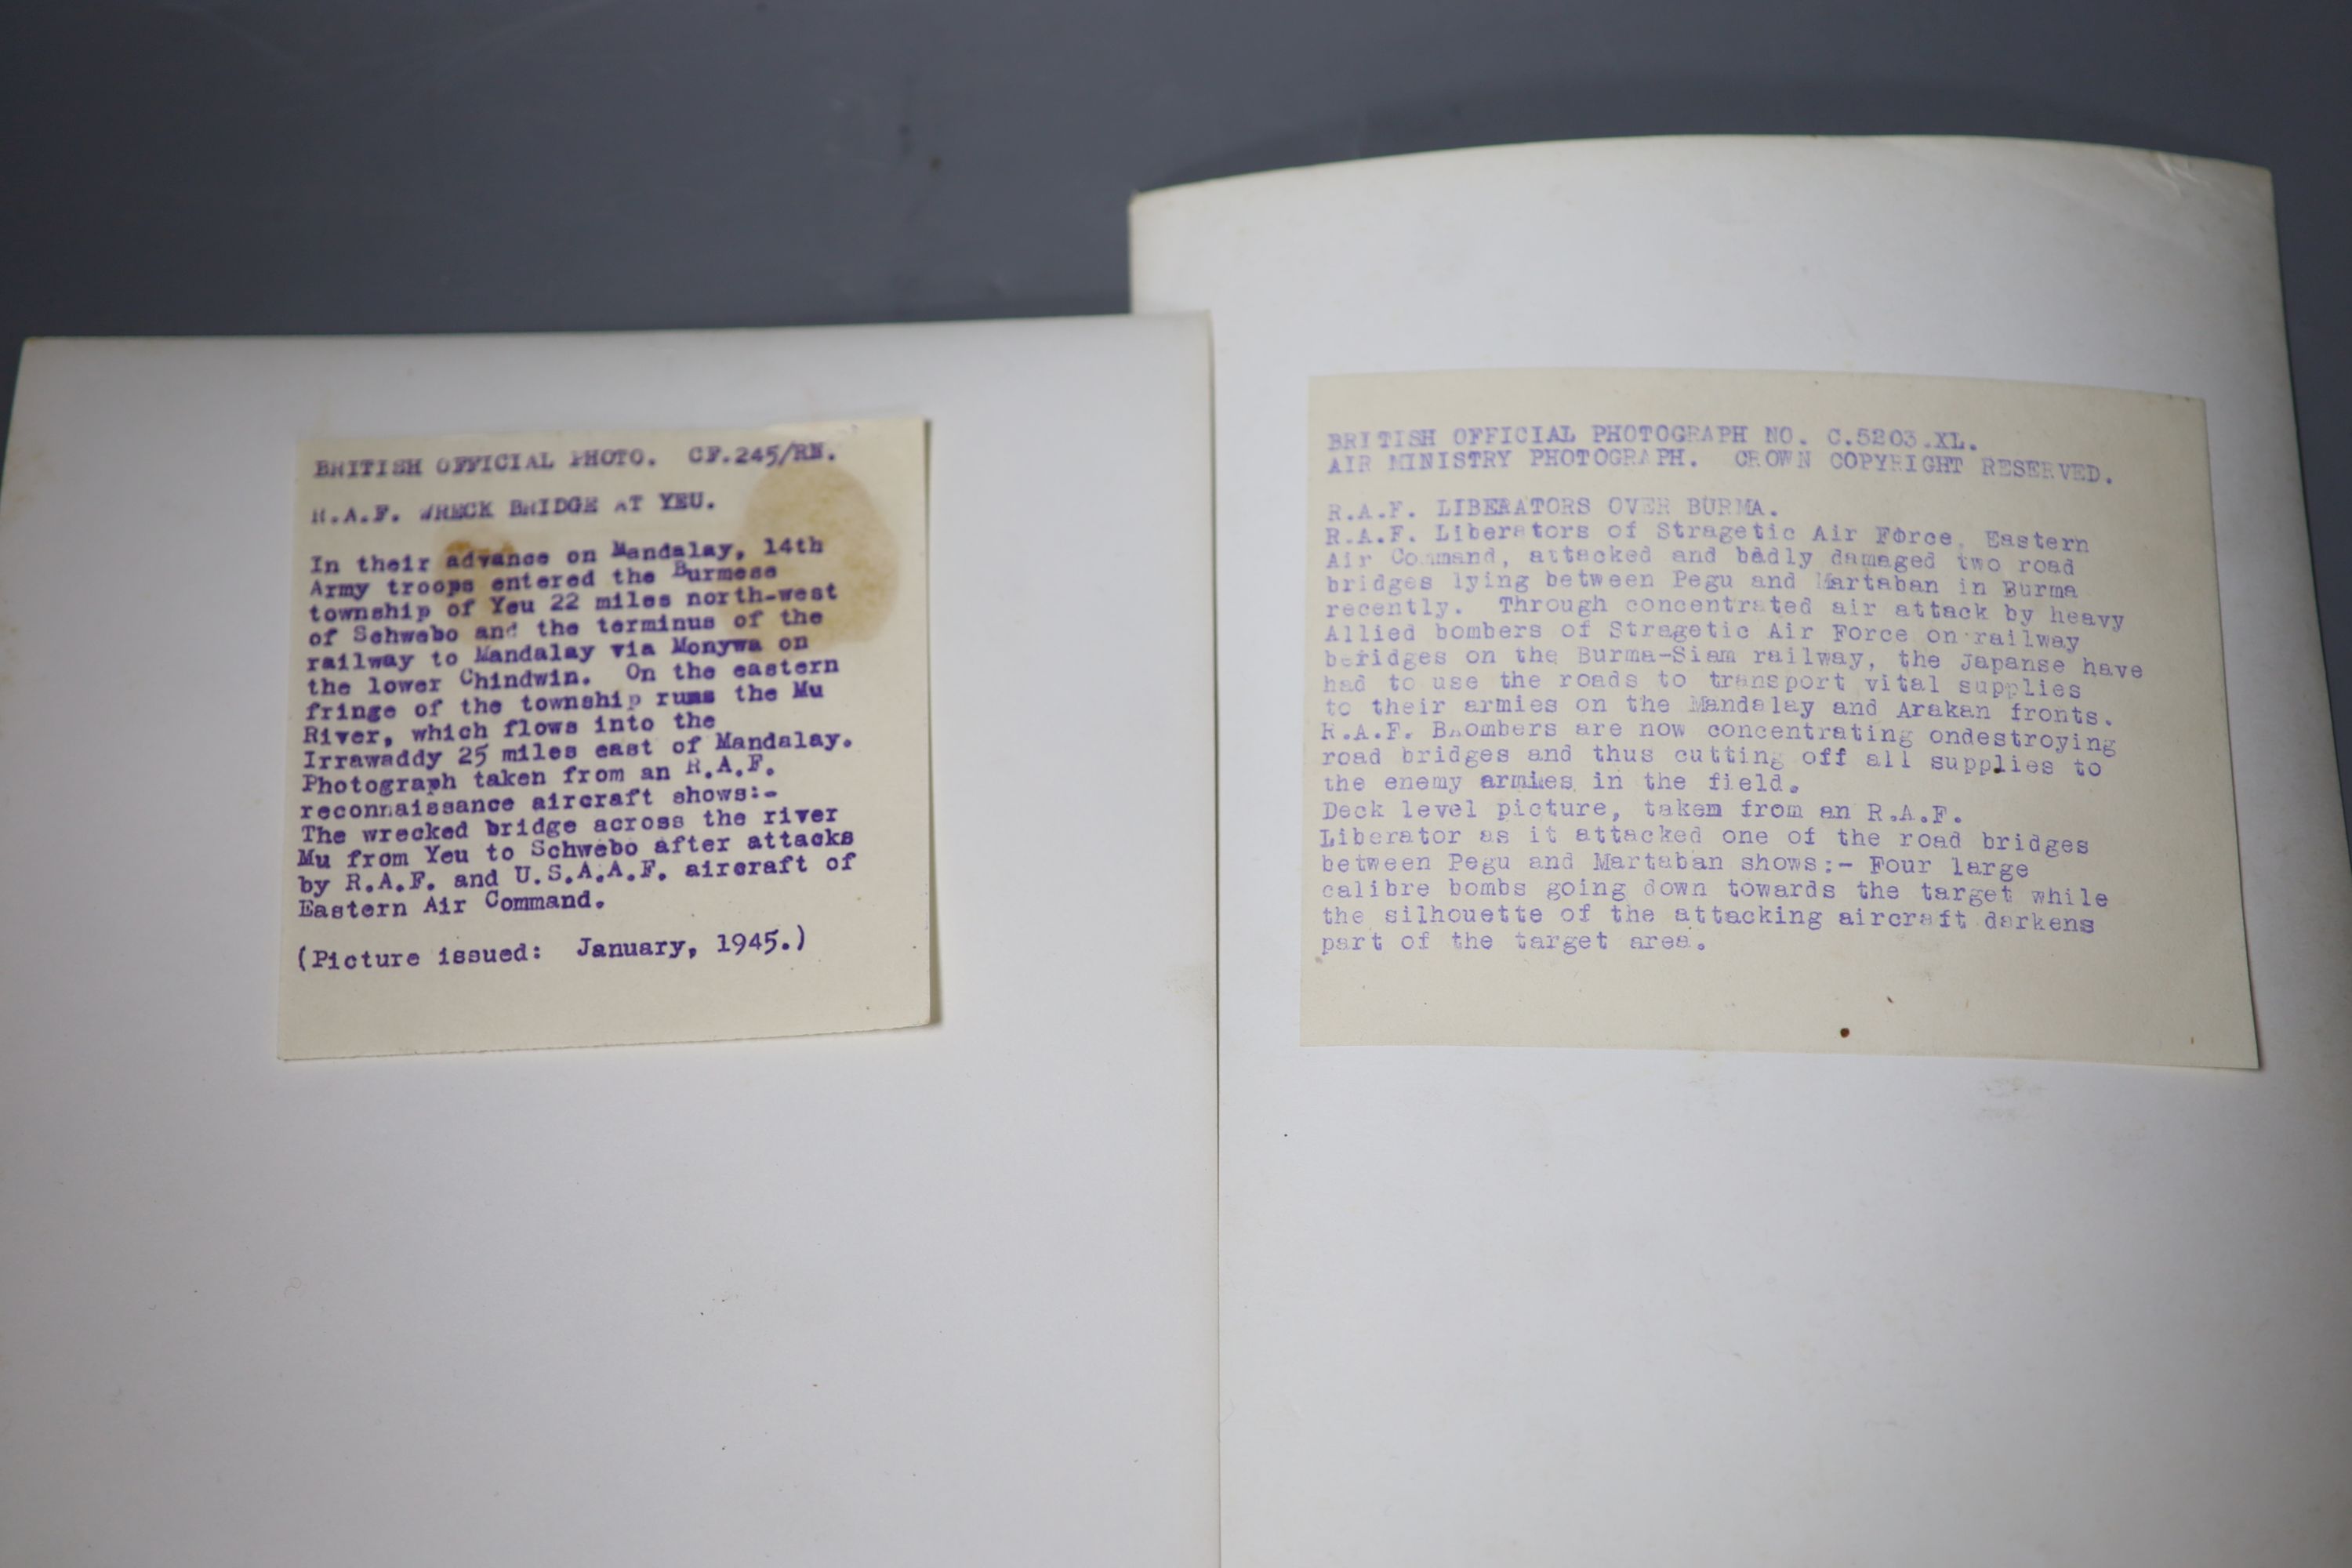 BRITISH OFFICIAL PHOTO. CF.245/RN.
R.A.F. WRECK BRIDGE AT YEU.
In their advance on Mandalay, 14th
Army troops entered the Burmese
township of Yeu 22 miles north-west
of Schwebo and the terminus of the
railway to Mandalay via Monywa on
the lower Chindwin. On the eastern
fringe of the township runs the Mu
River, which flows into the
Irrawaddy 25 miles east of Mandalay.
Photograph taken from an R.A.F.
reconnaissance aircraft shows:-
The wrecked bridge across the river
Mu from Yeu to Schwebo after attacks
by R.A.F. and U.S.A.A.F. aircraft of
Eastern Air Command.
(Picture issued: January, 1945.)
BRITISH OFFICIAL PHOTOGRAPH NO. C.5203.XL.
AIR MINISTRY PHOTOGRAPH. CROWN COPYRIGHT RESERVED.
R.A.F. LIBERATORS OVER BURMA.
R.A.F. Liberators of Stragetic Air Force, Eastern
Air Command, attacked and badly damaged two road
bridges lying between Pegu and Martaban in Burma
recently. Through concentrated air attack by heavy
Allied bombers of Stragetic Air Force on railway
beridges on the Burma-Siam railway, the Japanse have
had to use the roads to transport vital supplies
to their armies on the Mandalay and Arakan fronts.
R.A.F. Bhombers are now concentrating ondestroying
road bridges and thus cutting off all supplies to
the enemy armies in the field.
Deck level picture, taken from an R.A.F.
Liberator as it attacked one of the road bridges
between Pegu and Martaban shows:- Four large
calibre bombs going down towards the target while
the silhouette of the attacking aircraft darkens
part of the target area.